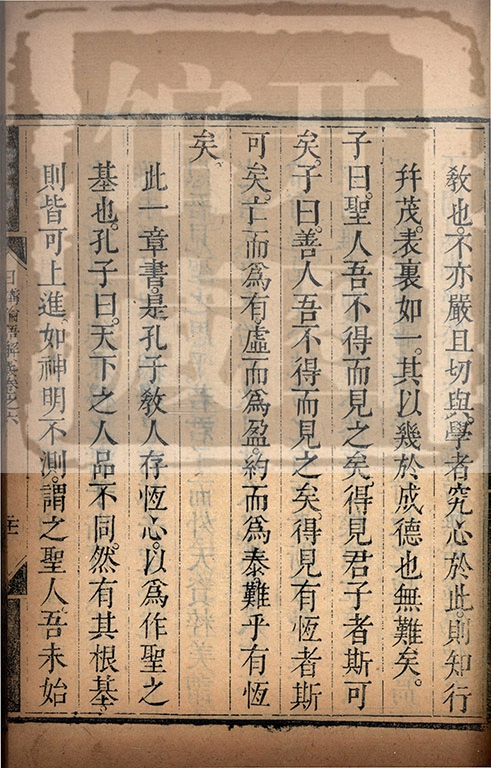 敎也。不亦嚴且切與。學者究心於此。則知行
幷茂。表裏如一。其以幾於成德也無難矣。
子曰。聖人吾不得而見之矣得見君子者斯可
矣。子曰。善人吾不得而見之矣得見有恆者斯
可矣。亡而爲有。虛而爲盈。約而爲泰。難乎有恆
矣。
此一章書。是孔子敎人存恆心。以爲作聖之
基也。孔子曰。天下之人品不同。然有其根基。
則皆可上進。如神明不測。謂之聖人。吾未始